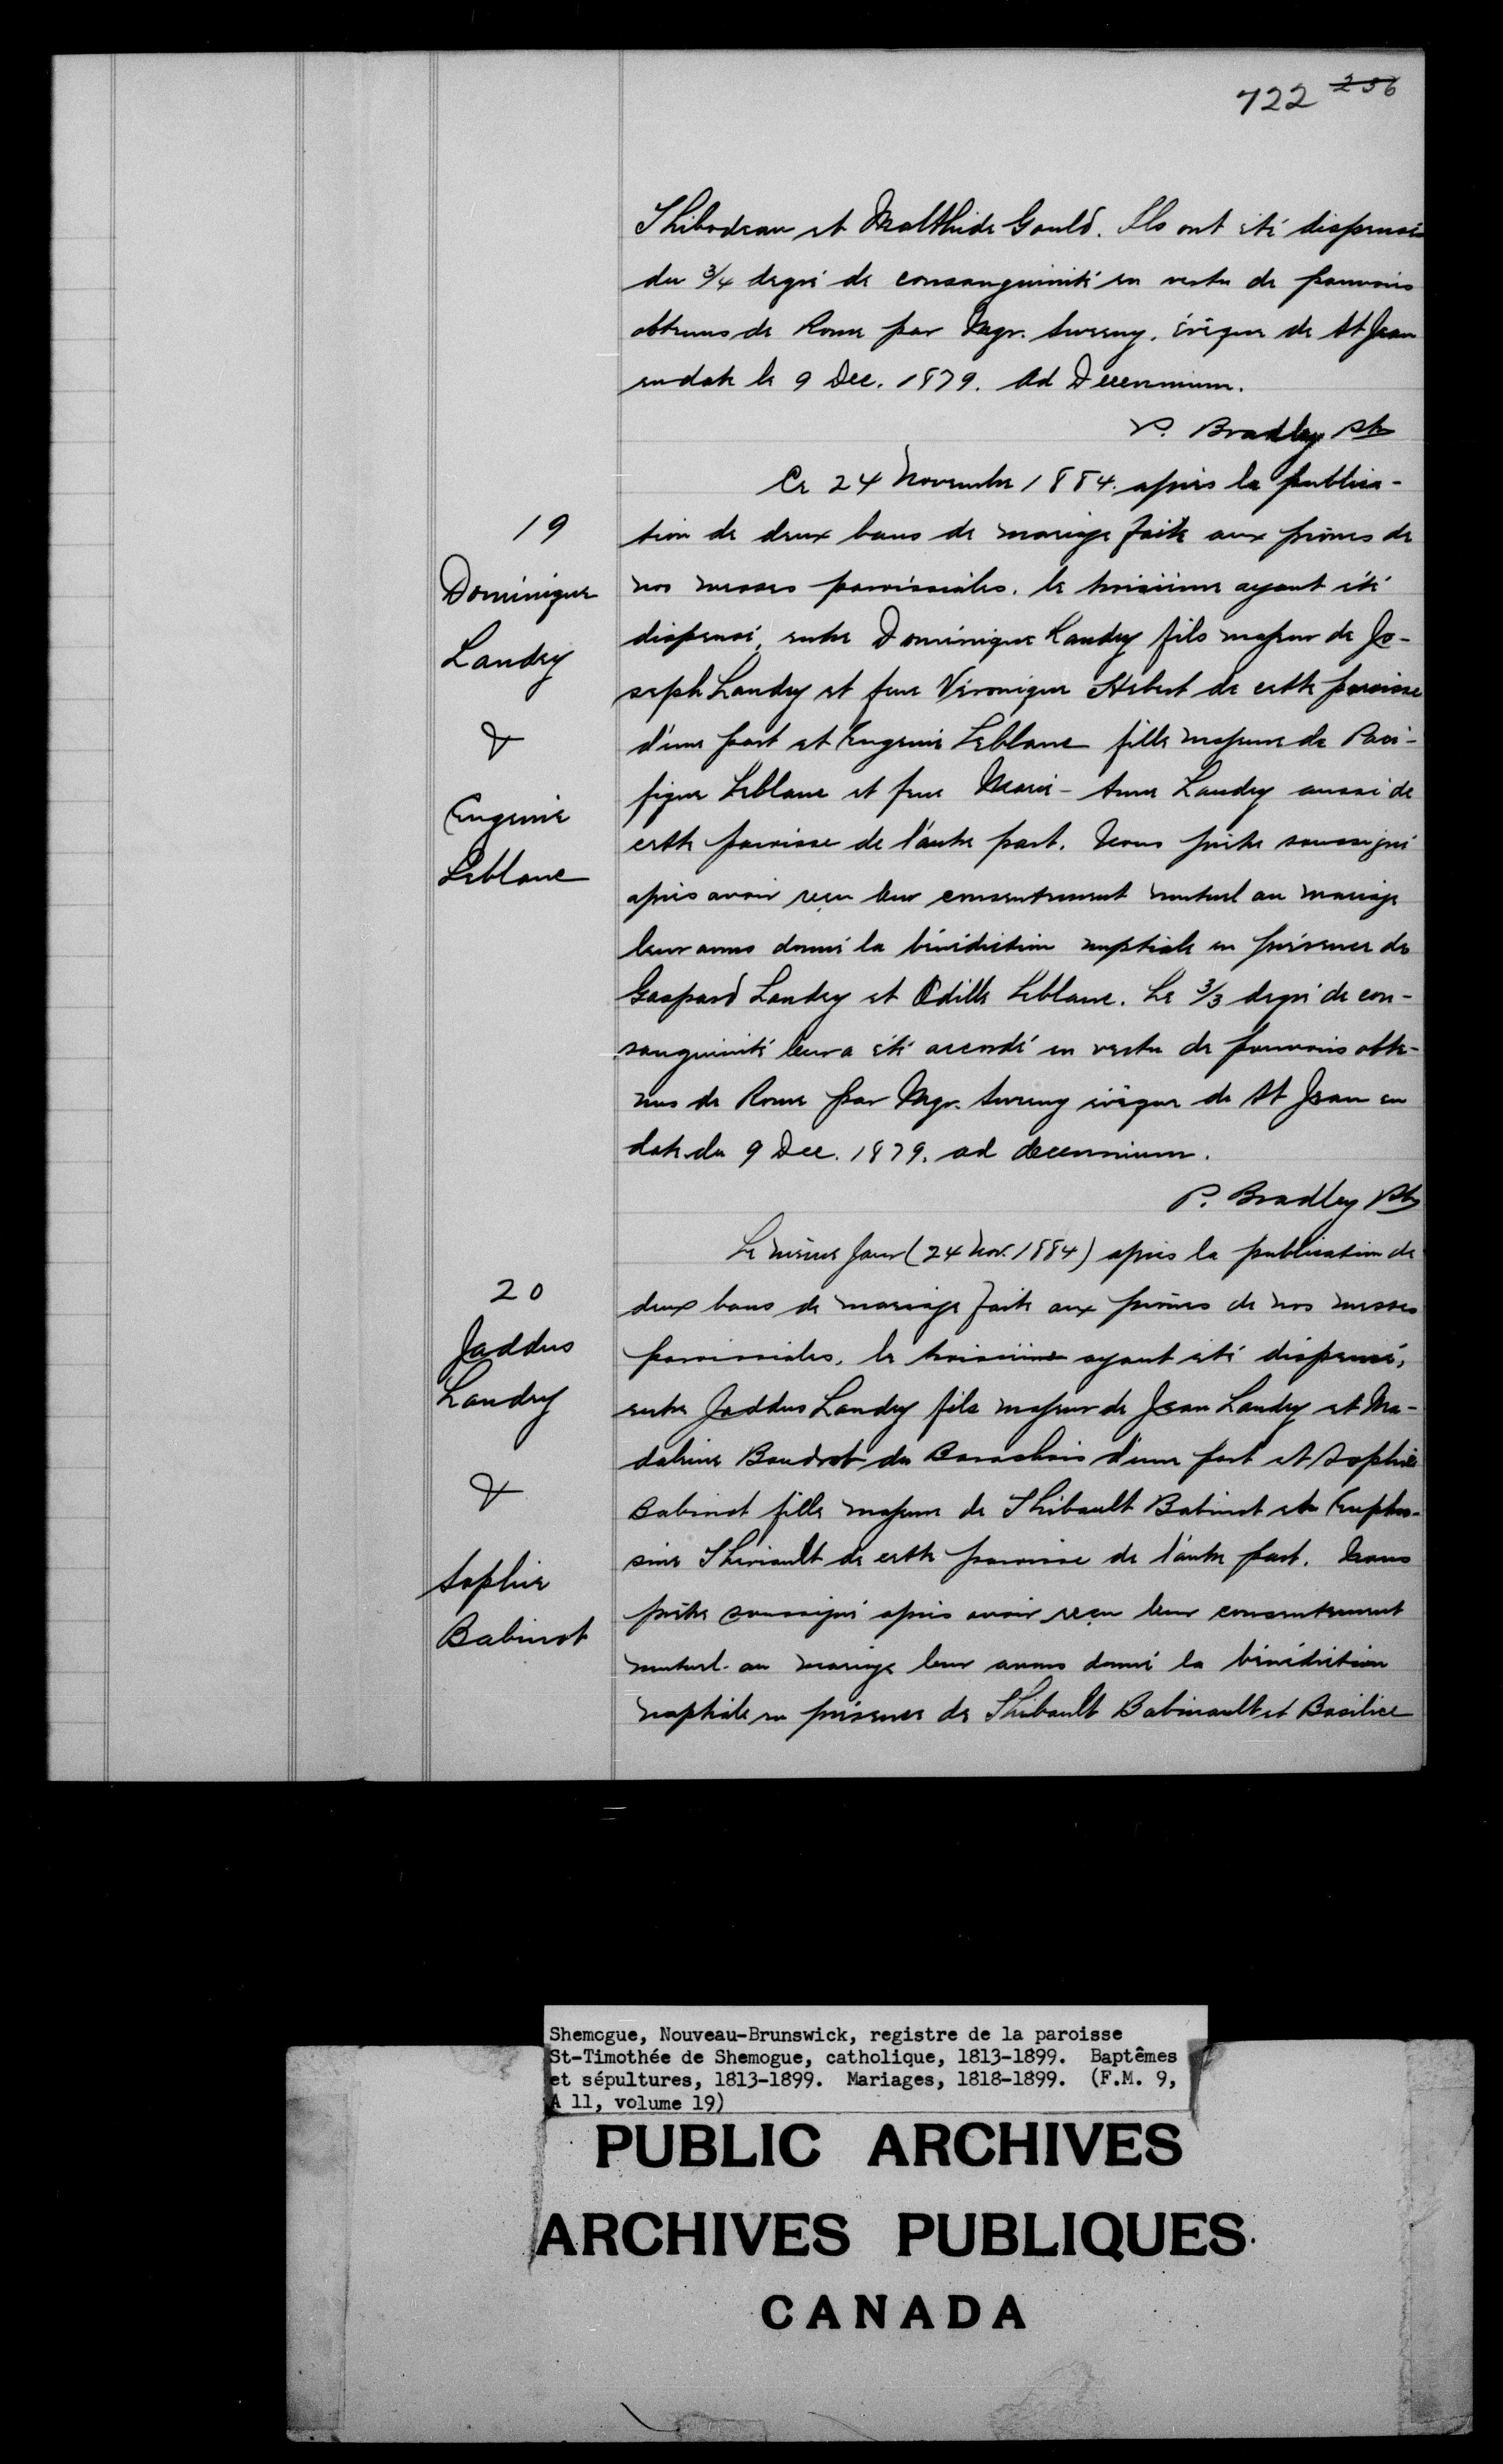 722 256
Thibodeau et Malthide Gould. Ils ont été dispensés
du 3/4 degré de consanguinité en vertu de pouvoirs
obtenus de Rome par Mgr. Sweeny, évêque de St Jean
en date le 9 Dec. 1879. Ad Decennium.
P. Bradley Ptr
Ce 24 Novembre 1884. après la publica-
19
tion de deux bans de mariage faite aux prônes de
Dominique
nos messes paroissiales, le troisième ayant été
Landry
dispensé, entre Dominique Landry fils majeur de Jo-
seph Landry et feue Véronique Hebert de cette paroisse
&
d'une part et Eugenie Leblanc fille majeure de Paci-
Eugenie
fique Leblanc et feue Marie-Anne Landry aussi de
Leblanc
cette paroisse de l'autre part. Nous prêtre soussigné
après avoir reçu leur consentement mutuel au mariage
leur avons donné la bénédiction nuptiale en présence de
Gaspard Landry et Odille Leblanc. Le 3/3 degré de con-
sanguinité leur a été accordé en vertu de pouvoirs obte-
nus de Rome par Mgr. Sweeny évêque de St Jean en
date du 9 Dec. 1879. ad decennium.
P. Bradley Ptr
Le même jour (24 Nov. 1884) après la publication de
20
deux bans de mariage faite aux prônes de nos messes
Jaddus
paroissiales, le troisième ayant été dispensé,
Landry
entre Jaddus Landry fils majeur de Jean Landry et Ma-
deleine Boudrot du Barachois d'une part et Sophie
&
Babinot fille majeure de Thibault Babinot et Euphro-
sine Thériault de cette paroisse de l'autre part. Nous
Sophie
prêtre soussigné après avoir reçu leur consentement
Babinot
mutuel au mariage leur avons donné la bénédiction
nuptiale en présence de Thibault Babineault et Basilice
Shemogue, Nouveau-Brunswick, registre de la paroisse
St-Timothée de Shemogue, catholique, 1813-1899. Baptêmes
et sépultures, 1813-1899. Mariages, 1818-1899. (F.M. 9,
A 11, volume 19)
PUBLIC ARCHIVES
ARCHIVES PUBLIQUES
CANADA